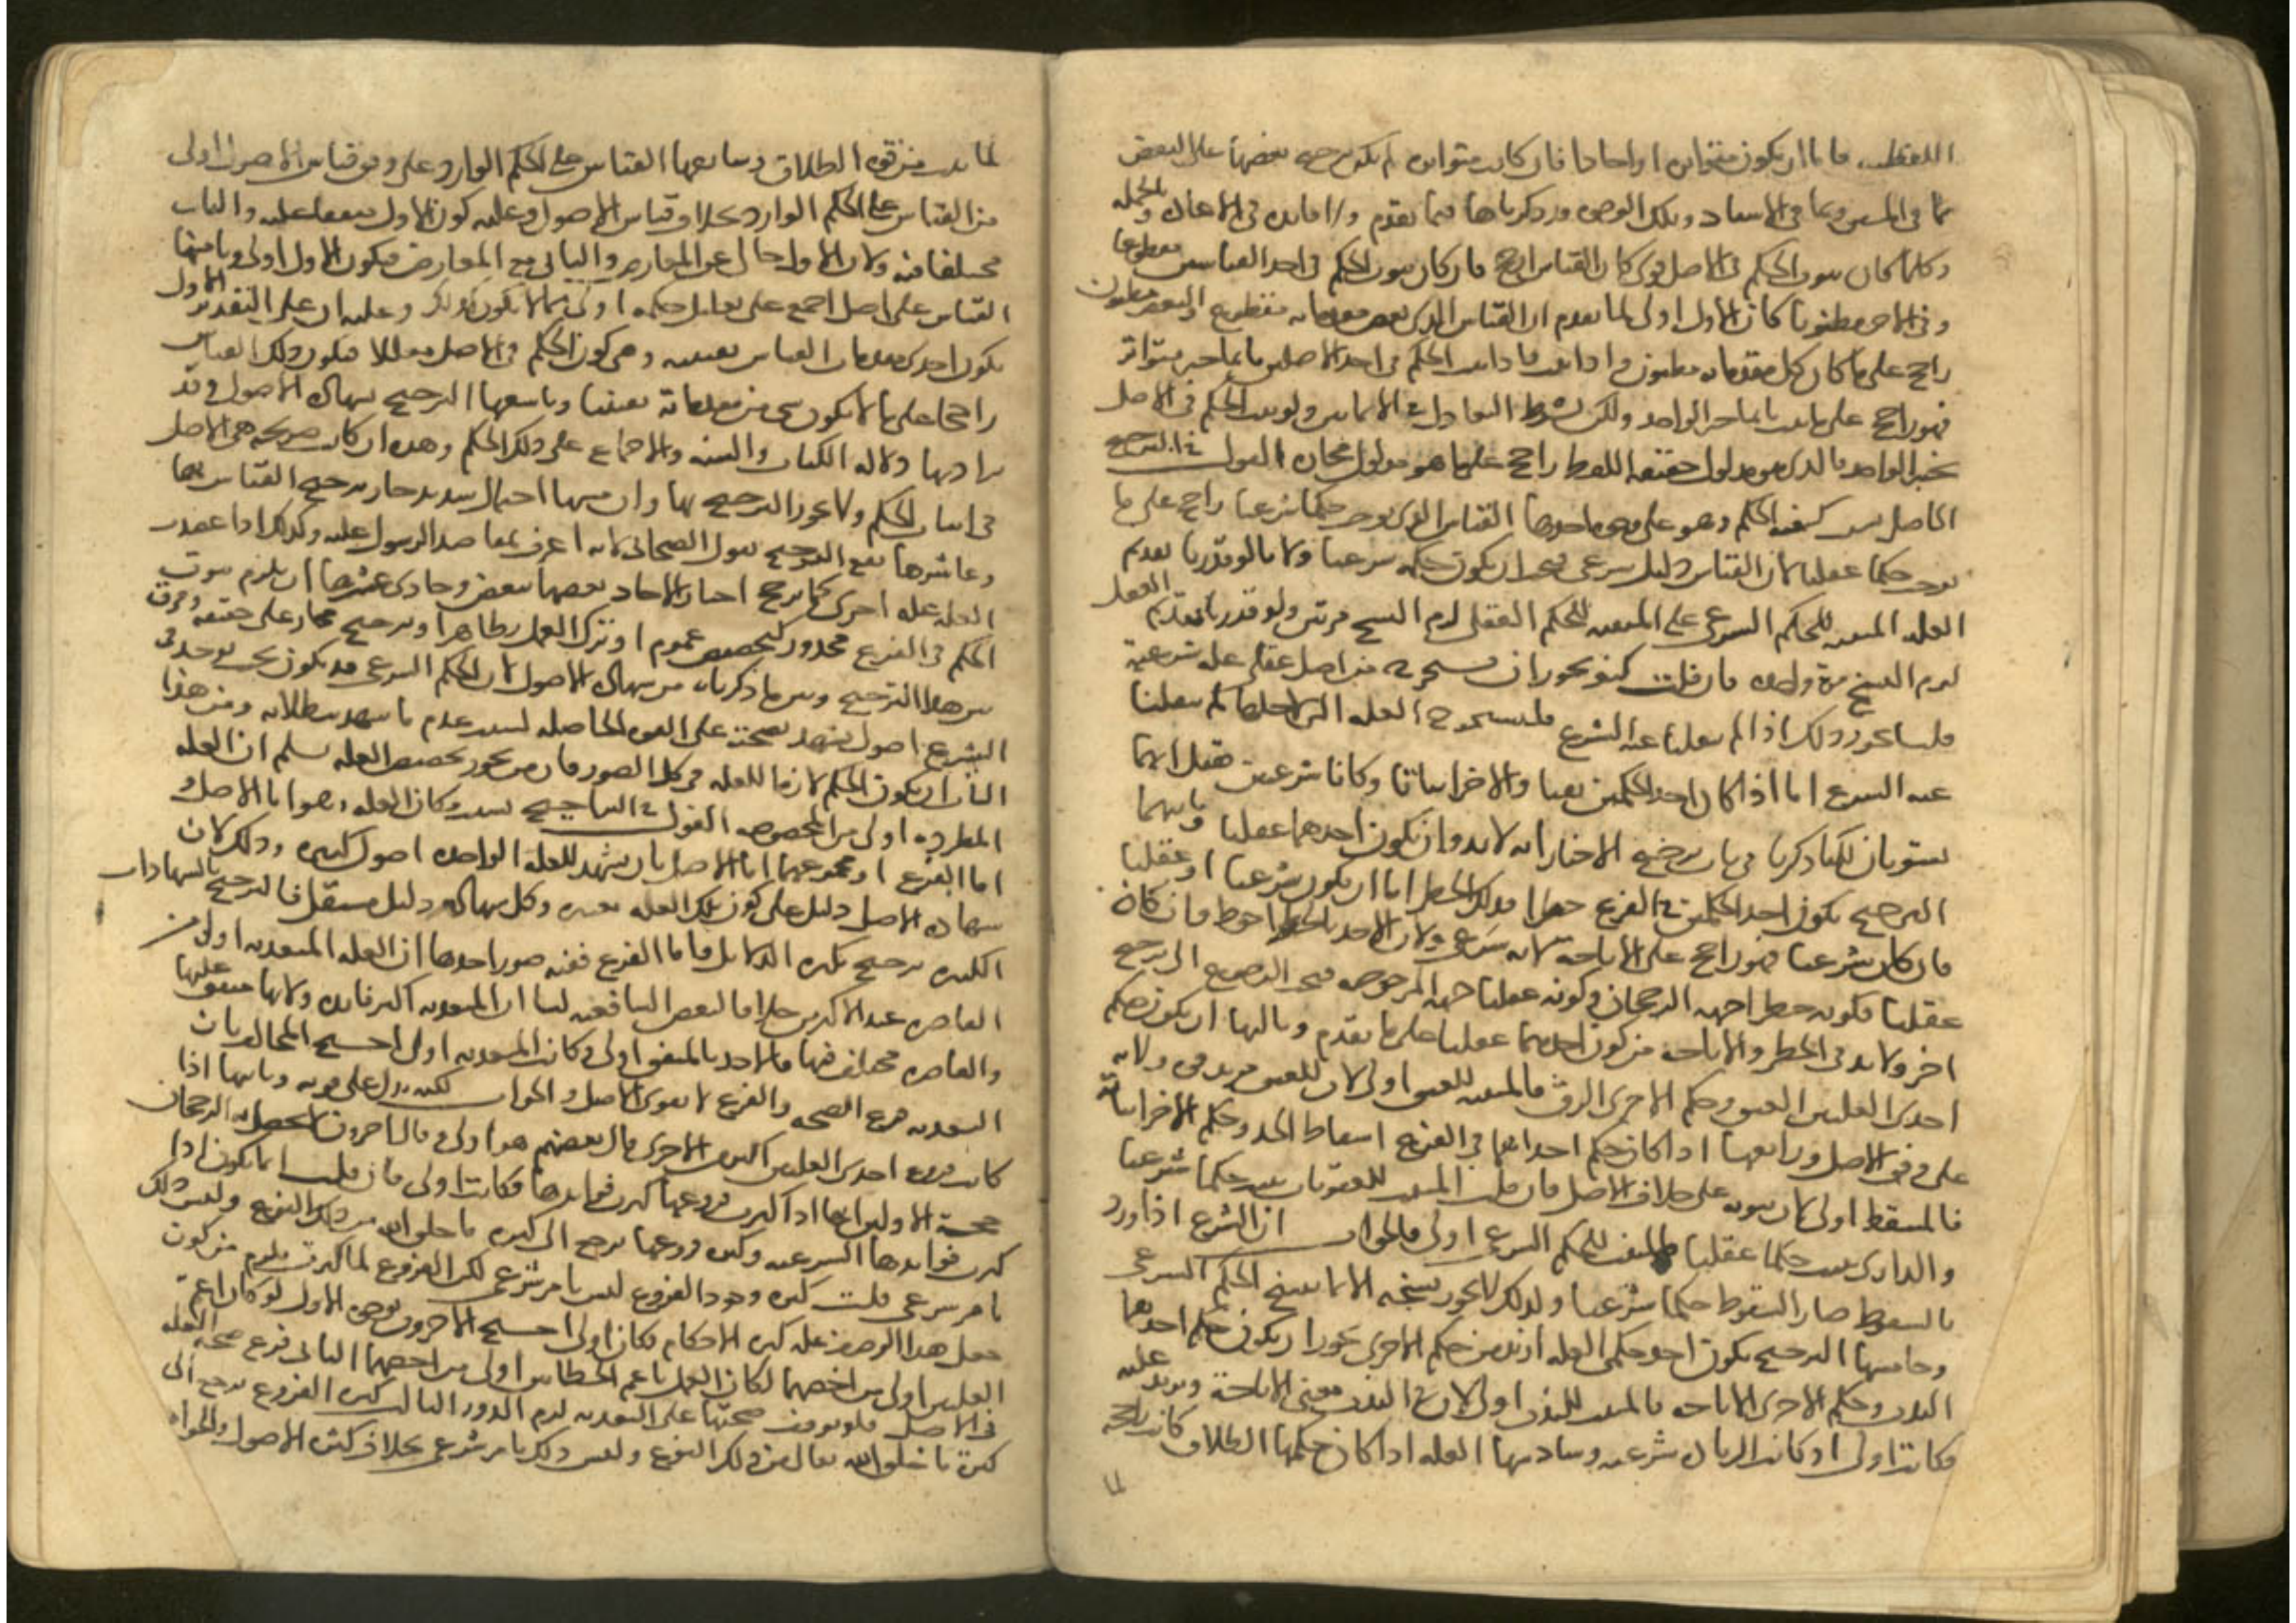 اللفظية فاما ان يكون متواترا او احادا فان كانت متواترة لم يكن ترجيح بعضها على البعض
بما في المتن وبما في الاسناد وتلك الوجوه قد ذكرناها فيما تقدم ولا فايدة في الاعادة وبالجملة
وكلما كان ثبوت الحكم في الاصل اقوى كان القياس ارجح فان كان ثبوت الحكم في احد القياسين مقطوعا
وفي الاخر مظنونا كان الاول اولى لما تقدم ان القياس الذي بعض مقدماته مقطوع والبعض مظنون
راجح على ما كان كل مقدماته مظنون واذا ثبت هذا ثبت الحكم في احد الاصلين بما بخبر متواتر
فهو راجح على ما ثبت بخبر الواحد ولكن بشرط التعادل في الاثباتين ولو ثبت الحكم في الاصل
بخبر الواحد فالذي هو مدلول حقيقة اللفظ راجح على ما هو مدلول مجازه القول في الترجيح
الحاصل بسبب كيفية الحكم وهو على وجوه احدها القياس الذي يوجب حكما شرعيا راجح على ما
يوجب حكما عقليا لان القياس دليل شرعي فيجب ان يكون حكمه شرعيا ولانا لو قدرنا تقديم
العلة المثبتة للحكم الشرعي على المثبتة للحكم العقلي لزم النسخ مرتين ولو قدرنا تقديم العقل
لزم النسخ مرة واحدة فان قلت كيف يجوز ان نستخرج من اصل عقلي علة شرعية
قلنا يجوز ذلك اذا لم ينقلنا عنه الشرع فنستخرج العلة التي لاجلها لم ينقلنا
عنه الشرع اما اذا كان احد الحكمين نفيا والاخر اثباتا وكانا شرعيين فقيل انهما
يستويان لكنا ذكرنا في باب ترجيح الاخبار انه لا بد وان يكون احدهما عقليا وثانيهما
الترجيح بكون احد الحكمين في الفرع حظرا فذلك الحظر اما ان يكون شرعيا او عقليا
فان كان شرعيا فهو راجح على الاباحة لانه شرعي ولان الاخذ بالحظر احوط فان كان
عقليا فكونه حظرا جهة الرجحان وكونه عقليا جهة المرجوحية فيجب الرجوع الى ترجيح
اخر ولا بد في الحظر والاباحة من كون احدهما عقليا على ما تقدم وثالثها ان يكون حكم
احدى العلتين العتق وحكم الاخرى الرق فالمثبتة للعتق اولى لان للعتق مزيد قوة ولانه
على وفق الاصل ورابعها اذا كان حكم احداهما في الفرع اسقاط الحد وحكم الاخر اثباته
فالمسقط اولى لان ثبوته على خلاف الاصل فان قلت المثبت للعقوبات يثبت حكما شرعيا
والدارئ يثبت حكما عقليا فالمثبت للحكم الشرعي اولى فالجواب ان الشرع اذا ورد
بالسقوط صار السقوط حكما شرعيا ولذلك لا يجوز نسخه الا بما ينسخ الحكم الشرعي
وخامسها الترجيح بكون احد حكمي العلة ازيد من حكم الاخرى يجوز ان يكون حكم احدها
الندب وحكم الاخرى الاباحة فالمثبت للندب اولى لان في الندب معنى الاباحة ويزيد عليه
فكانت اولى اذ كانت الزيادة شرعية وسادسها العلة اذا كان حكمها الطلاق كانت راجحة
لما
لما ثبت من قوة الطلاق وسابعها القياس على الحكم الوارد على وفق قياس الاصول اولى
من القياس على الحكم الوارد بخلاف قياس الاصول وعليه كون الاول متفقا عليه والثاني
مختلفا فيه ولان الاول خال عن المعارض والثاني مع المعارض فيكون الاول اولى وثامنها
القياس على اصل اجمع على تعليل حكمه اولى مما لا يكون كذلك وعليه ان على التقدير الاول
يكون احدى مقدمات القياس يقينية وهي كون الحكم في الاصل معللا فيكون ذلك القياس
راجحا على ما لا يكون شي من مقدماته يقينيا وتاسعها الترجيح بشهادة الاصول وقد
يراد بها دلالة الكتاب والسنة والاجماع على ذلك الحكم وهذه ان كانت صريحة هي الاصل
في اثبات الحكم ولا يجوز الترجيح بها وان مسها احتمال شديد جاز ترجيح القياس بها
وعاشرها يقع الترجيح بقول الصحابي لانه اعرف بمقاصد الرسول عليه وكذلك اذا عضدت
العلة علة اخرى كما يرجح اخبار الاحاد بعضها ببعض وحادي عشرها ان يلزم ثبوت
الحكم في الفرع محذور كتخصيص عموم او ترك العمل بظاهر او ترجيح مجاز على حقيقة وفرق
بين هذا الترجيح وبين ما ذكرناه من شهادة الاصول لان الحكم الشرعي قد يكون بحيث يوجد في
الشرع اصول يشهد بصحته على القوة الحاصلة بسبب عدم ما يشهد ببطلانه ومن هذا
الباب ان يكون الحكم لازما للعلة في كل الصور فان من يجوز تخصيص العلة يسلم ان العلة
المطردة اولى من المخصوصة القول في التراجيح بسبب مكان العلة وهو اما الاصل او
اما الفرع او مجموعهما اما الاصل بان يشهد للعلة الواحدة اصول كثيرة وذلك لان
شهادة الاصل دليل على كون تلك العلة معتبرة وكل شهادة دليل مستقل فالترجيح بالشهادات
الكثيرة ترجيح بكثرة الدلايل فاما الفرع ففيه صور احدها ان العلة المتعدية اولى من
القاصرة عند الاكثرين خلافا لبعض الشافعية لنا ان المتعدية اكثر فايدة ولانها متفق عليها
والقاصرة مختلف فيها فالاخذ بالمتفق اولى وكانت المتعدية اولى احتج المخالف بان
التعدية فرع الصحة والفرع لا يقوي الاصل والجواب لكنه يدل على قوته وثانيها اذا
كانت فروع احدى العلتين اكثر من الاخرى قال بعضهم هو اولى وقال اخرون لا يحصل به الرجحان
حجة الاولين انها اذا كثرت فروعها كثرت فوايدها فكانت اولى فان قلت انما يكون اذا
كثرت فوايدها الشرعية وكثرة فروعها ترجع الى كثرة ما خلق الله من ذلك الفرع وليس ذلك
بامر شرعي قلت كثرة وجود الفروع ليس بامر شرعي لكن الفروع لما كثرت يلزم من كون
جعل هذا الوصف علة كثرة الاحكام فكان اولى احتج الاخرون بوجوه الاول لو كان اعم
العلتين اولى من اخصهما لكان العمل باعم الخطابين اولى من اخصهما الثاني فرع صحة العلة
في الاصل فلو توقفت صحتها على التعدية لزم الدور الثالث كثرة الفروع ترجع الى
كثرة ما خلق الله تعالى من ذلك الفرع وليس ذلك بامر شرعي بخلاف كثرة الاصول والجواب